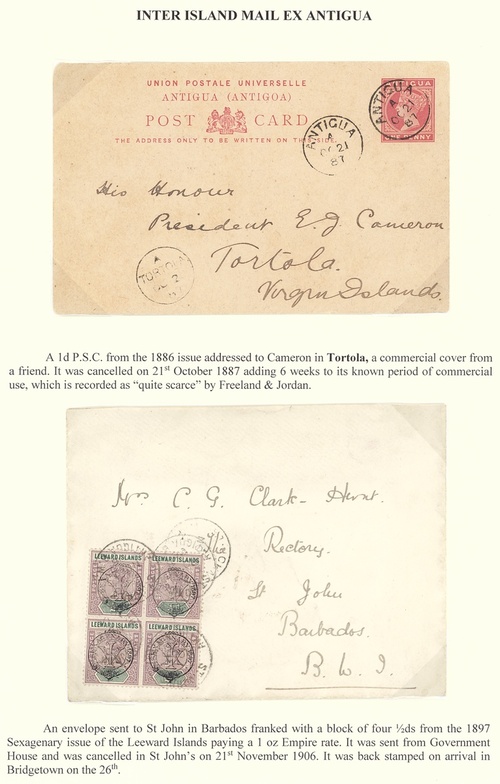 INTER ISLAND MAIL EX ANTIGUA
UNION POSTALE UNIVERSELLE
ANTIGUA (ANTIGOA)
POST CARD
THE ADDRESS ONLY TO BE WRITTEN ON THIS SIDE.
ANTIGUA
A
OC 21
87
ANTIGUA
A
OC 21
87
His Honour
President E. J. Cameron
Tortola.
Virgin Islands.
A
TORTOLA
A 1d P.S.C. from the 1886 issue addressed to Cameron in Tortola, a commercial cover from
a friend. It was cancelled on 21st October 1887 adding 6 weeks to its known period of commercial
use, which is recorded as “quite scarce” by Freeland & Jordan.
Mrs C. G. Clark-Hunt.
Rectory.
St John
Barbados.
B. W. I.
LEEWARD ISLANDS
LEEWARD ISLANDS
LEEWARD ISLANDS
LEEWARD ISLANDS
An envelope sent to St John in Barbados franked with a block of four ½ds from the 1897
Sexagenary issue of the Leeward Islands paying a 1 oz Empire rate. It was sent from Government
House and was cancelled in St John’s on 21st November 1906. It was back stamped on arrival in
Bridgetown on the 26th.